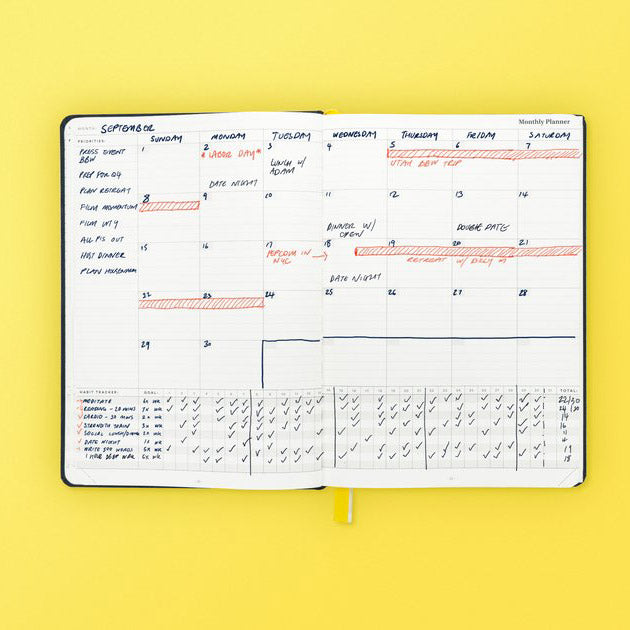 Monthly Planner
MONTH: SEPTEMBER
PRIORITIES:
SUNDAY MONDAY TUESDAY WEDNESDAY THURSDAY FRIDAY SATURDAY
PRESS EVENT
BBW
PREP FOR Q4
PLAN RETREAT
FILM MOMENTUM
FILM
ALL P'S OUT
HOST DINNER
PLAN
1 2 3 4 5 6 7
*LABOR DAY*
LUNCH W/
ADAM
UTAH BBW TRIP
DATE NIGHT
8 9 10 11 12 13 14
DINNER W/
DOUBLE DATE
15 16 17 18 19 20 21
IN
NYC
RETREAT W/
DATE NIGHT
22 23 24 25 26 27 28
29 30
HABIT TRACKER: GOAL: TOTAL:
MEDITATE 6x WK
READING - 20 MINS 7x WK
CARDIO - 30 MINS WK
STRENGTH TRAIN 3x WK
SOCIAL LUNCH/DINNER 2x WK
DATE NIGHT 1x WK
WRITE 500 WORDS 5x WK
1 HOUR DEEP WRK 5x WK
22/30
24/30
14
16
11
4
19
18